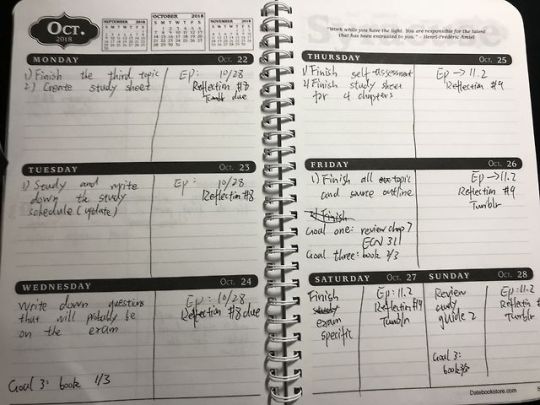 OCT.
2018
SEPTEMBER 2018
OCTOBER 2018
NOVEMBER 2018
MONDAY OCT. 22
1) Finish the third topic
2) Create study sheet
Ep: 10/28
Reflection #8
Tumblr due
TUESDAY OCT. 23
1) Study and write
down the study
schedule (update)
Ep: 10/28
Reflection #8
WEDNESDAY OCT. 24
Write down questions
that will probably be
on the exam
Ep: 10/28
Reflection #8 due
Goal 3: book 1/3
"Work while you have the light. You are responsible for the talent
that has been entrusted to you." – Henri-Frédéric Amiel
THURSDAY OCT. 25
1) Finish self-assessment
2) Finish study sheet
for 4 chapters
Ep → 11.2
Reflection #9
FRIDAY OCT. 26
1) Finish all topic
and source outline
2) Finish
Goal one: review chap 7
ECN 311
Goal three: book 2/3
Ep → 11.2
Reflection #9
Tumblr
SATURDAY OCT. 27
Finish
study
exam
specific
Ep: 11.2
Reflection #9
Tumblr
SUNDAY OCT. 28
Review
study
guide 2
Goal 3:
book 3/3
Ep: 11.2
Reflectin #9
Tumblr
Datebookstore.com